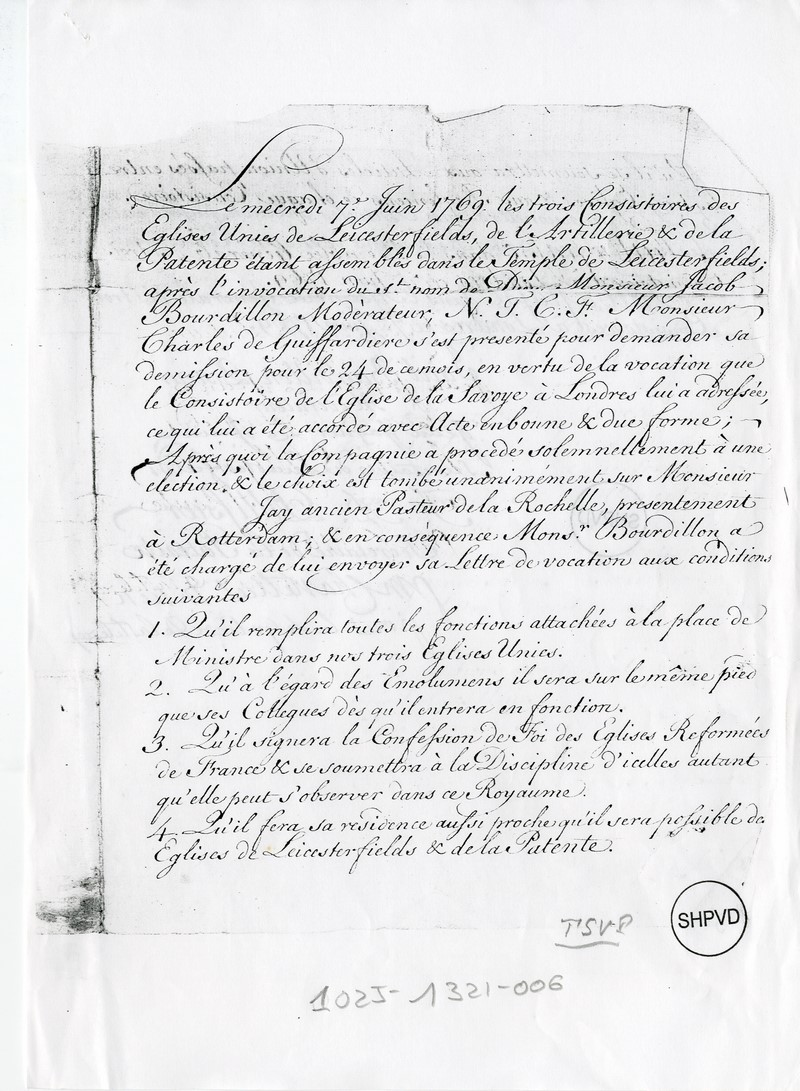 Le mecredi 7.e Juin 1769. les trois Consistoires des
Eglises Unies de Leicesterfields, de l'Artillerie & de la
Patente étant assemblés dans le Temple de Leicesterfields;
après l'invocation du st. nom de Dieu Monsieur Jacob
Bourdillon Modérateur, N. T. C. F. Monsieur
Charles de Guiffardiere s'est presenté pour demander sa
demission pour le 24 de ce mois, en vertu de la vocation que
le Consistoire de l'Eglise de la Savoye à Londres lui a adressée,
ce qui lui a été accordé avec Acte en bonne & due forme;
Après quoi la Compagnie a procédé solemnellement à une
election, & le choix est tombé unànimément sur Monsieur
Jay ancien Pasteur de la Rochelle, presentement
à Rotterdam; & en conséquence Mons.r Bourdillon a
été chargé de lui envoyer sa Lettre de vocation aux conditions
suivantes
1. Qu'il remplira toutes les fonctions attachées à la place de
Ministre dans nos trois Eglises Unies.
2. Qu'à l'égard des Emolumens il sera sur le même pied
que ses Collegues dès qu'il entrera en fonction.
3. Qu'il signera la Confession de Foi des Eglises Reformées
de France & se soumettra à la Discipline d'icelles autant
qu'elle peut s'observer dans ce Royaume.
4. Qu'il fera sa résidence aussi proche qu'il sera possible de
Eglises de Leicesterfields & de la Patente.
TSVP
SHPVD
102J-1321-006